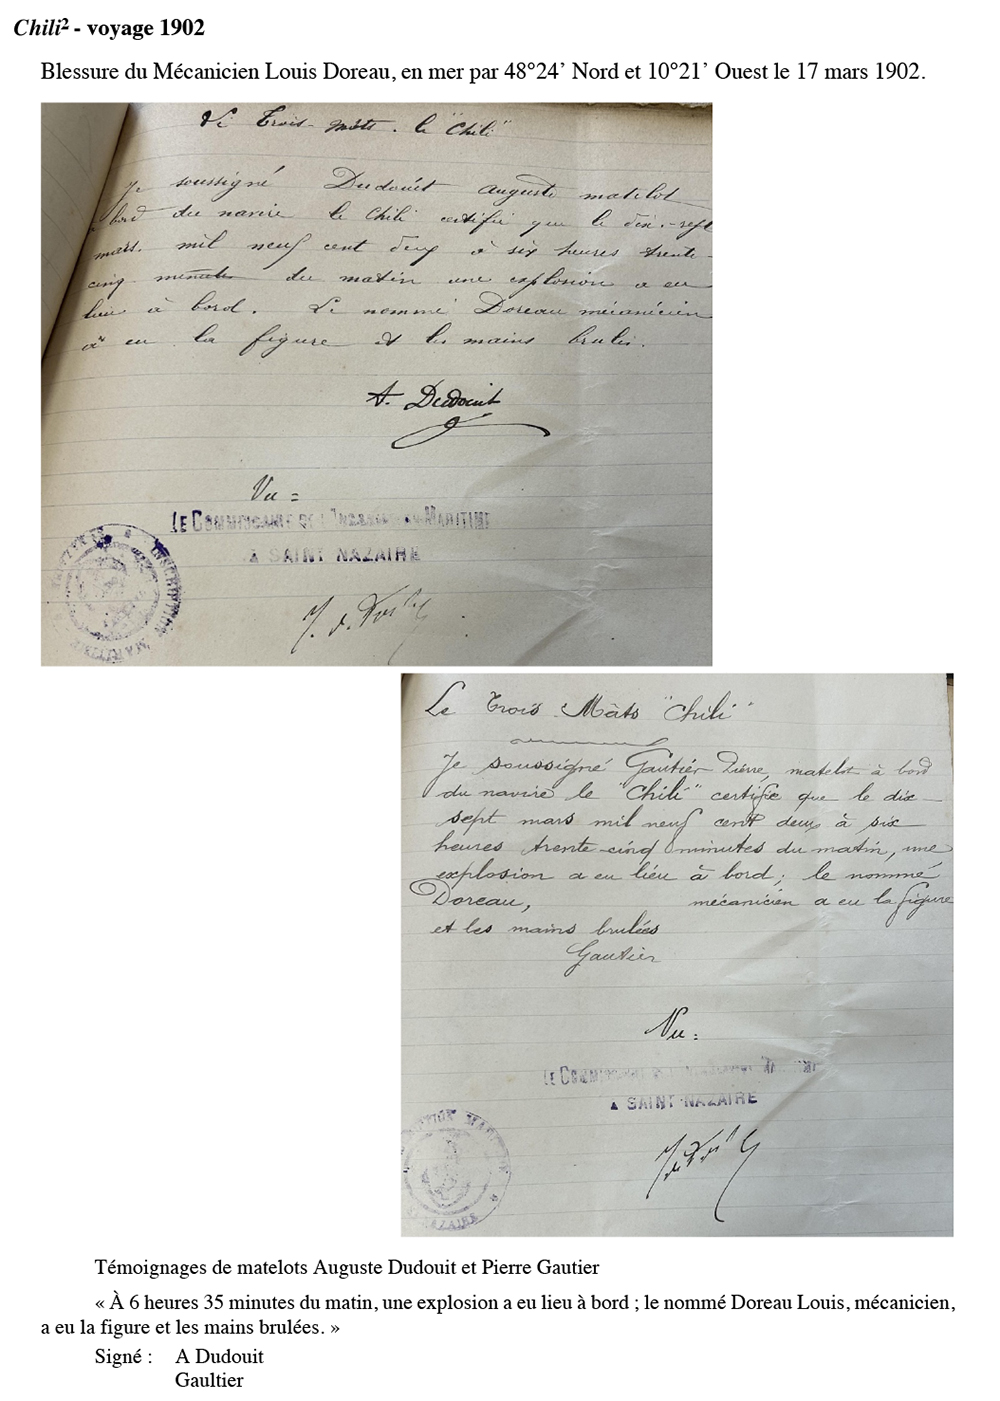 Chili² - voyage 1902
Blessure du Mécanicien Louis Doreau, en mer par 48°24’ Nord et 10°21’ Ouest le 17 mars 1902.
Trois-mâts. le "Chili"
Je soussigné Dudouit auguste matelot
bord du navire le Chili certifie que le dix-sept
mars. mil neuf cent deux à six heures trente
cinq minutes du matin une explosion a eu
lieu à bord. Le nommé Doreau mécanicien
à eu la figure et les mains brulés.
A. Dudouit
Vu =
LE COMMISSAIRE DE L'INSCRIPTION MARITIME
À SAINT NAZAIRE
INSCRIPTION MARITIME
Le Trois Mâts "Chili"
Je soussigné Gautier Pierre, matelot à bord
du navire le "Chili" certifie que le dix-
sept mars mil neuf cent deux à six
heures trente-cinq minutes du matin, une
explosion a eu lieu à bord; le nommé
Doreau, mécanicien a eu la figure
et les mains brulées
Gautier
Vu =
LE COMMISSAIRE
À SAINT-NAZAIRE
Témoignages de matelots Auguste Dudouit et Pierre Gautier
« À 6 heures 35 minutes du matin, une explosion a eu lieu à bord ; le nommé Doreau Louis, mécanicien,
a eu la figure et les mains brulées. »
Signé : A Dudouit
Gaultier